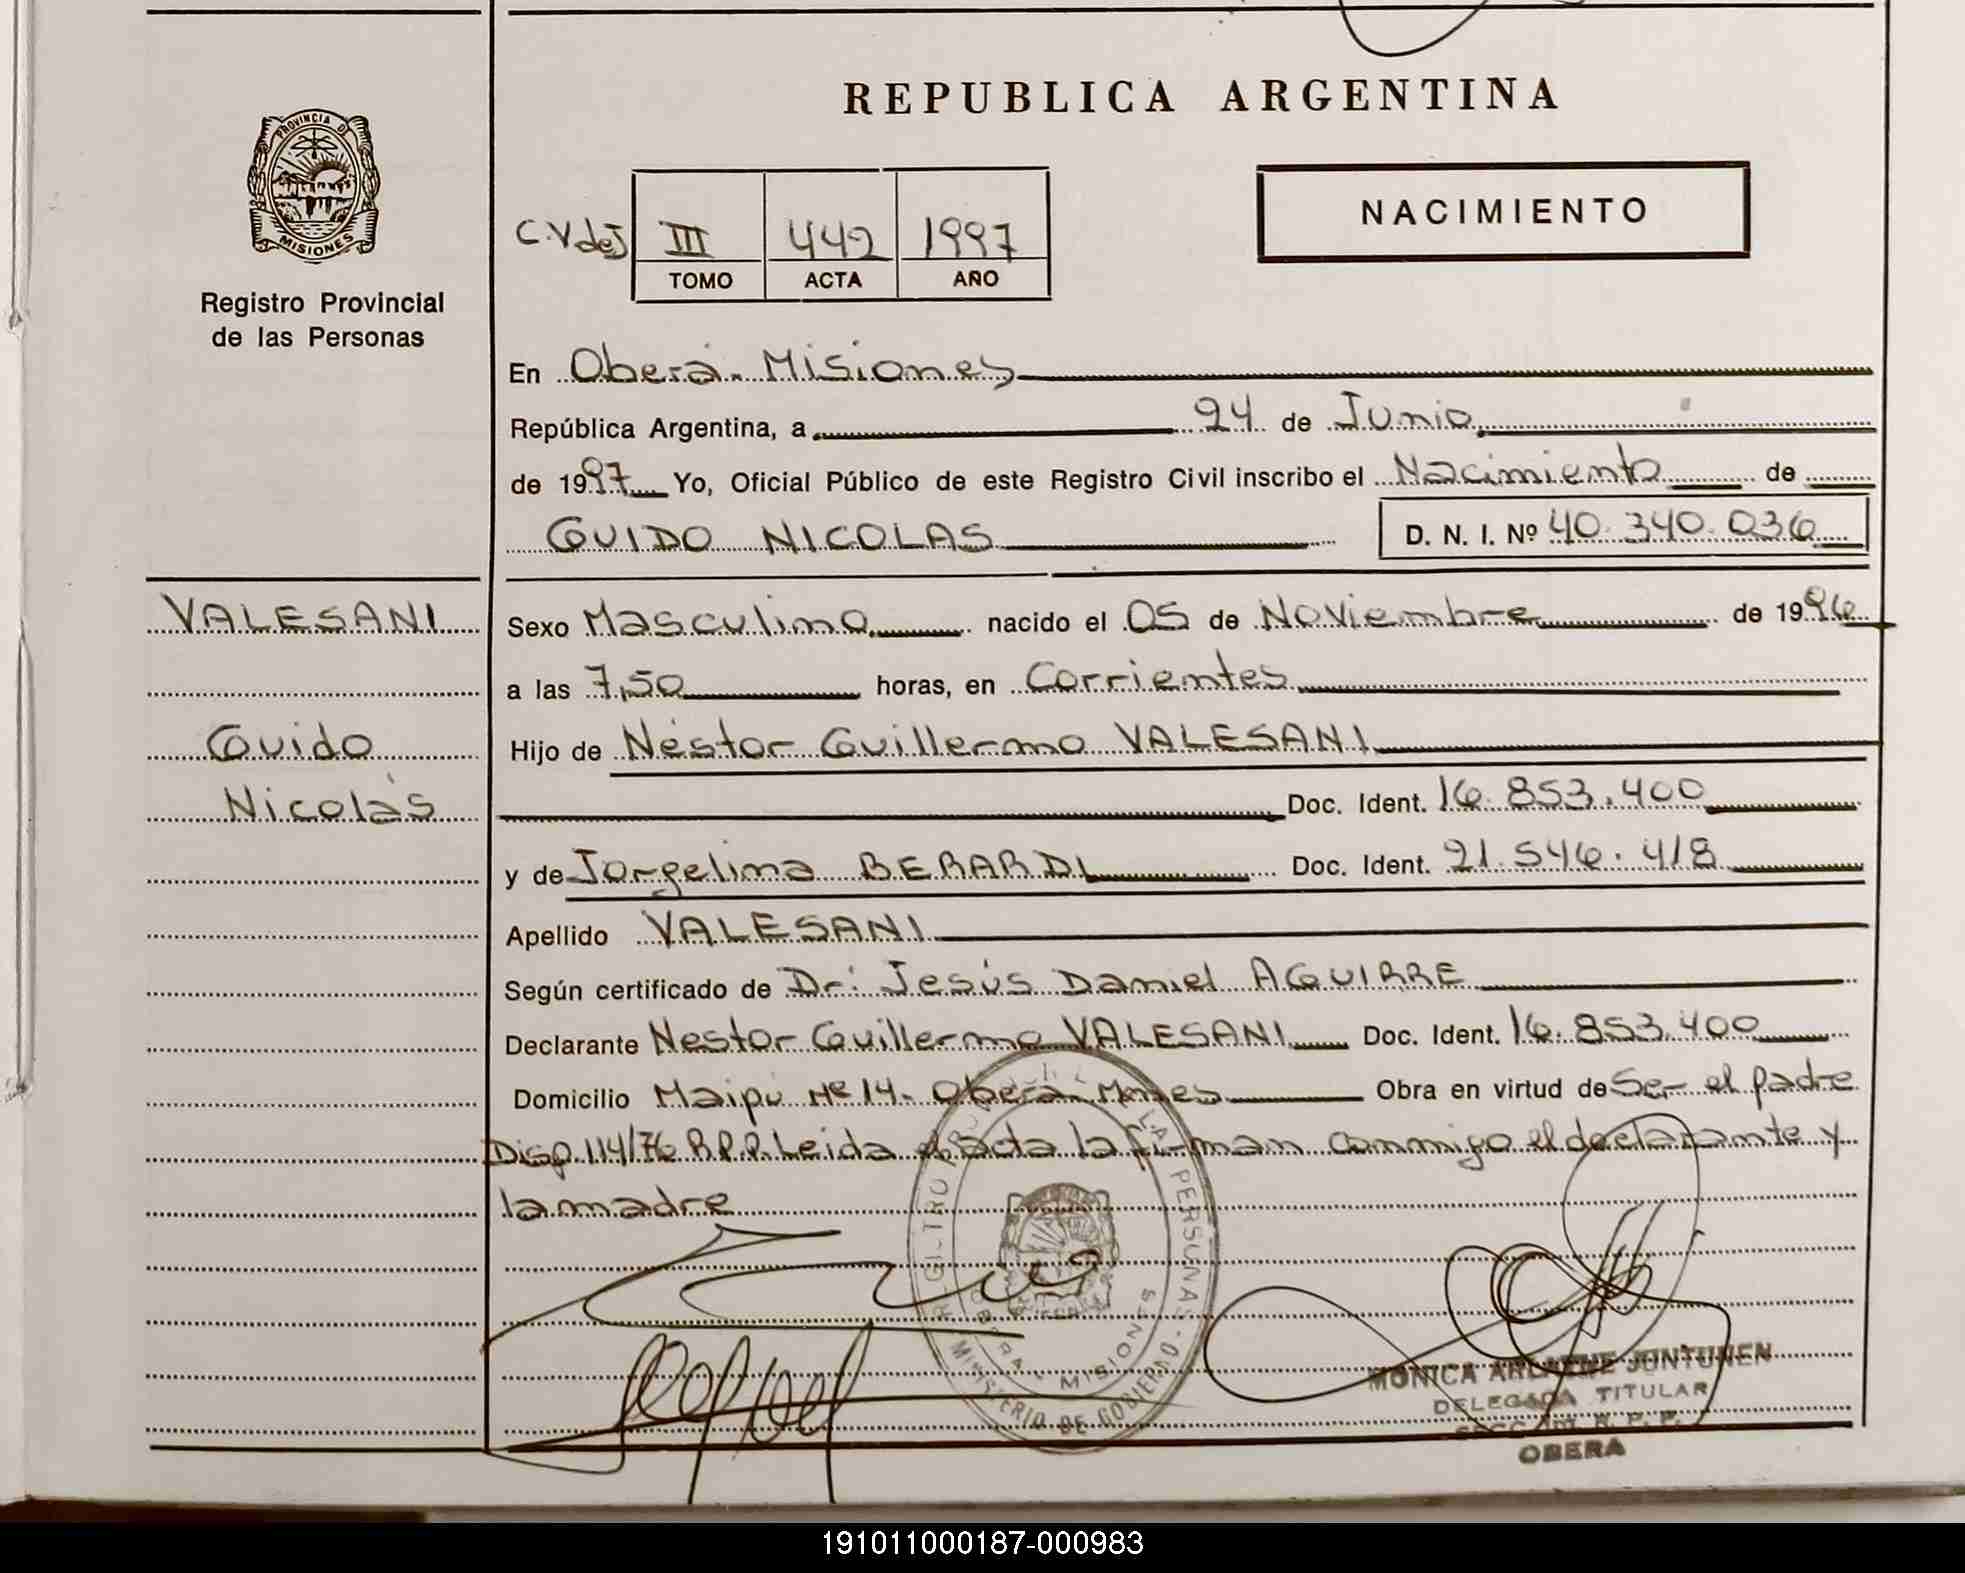 REPUBLICA ARGENTINA
PROVINCIA DE
MISIONES
Registro Provincial
de las Personas
NACIMIENTO
C.V de J III 442 1997
TOMO ACTA AÑO
En Oberá - Misiones
República Argentina, a 24 de Junio
de 1997 Yo, Oficial Público de este Registro Civil inscribo el Nacimiento de
GUIDO NICOLAS D. N. I. Nº 40.340.036
VALESANI
Sexo Masculino nacido el 05 de Noviembre de 1996
a las 7,50 horas, en Corrientes
Guido
Hijo de Néstor Guillermo VALESANI
Nicolás
Doc. Ident. 16.853.400
y de Jorgelina BERARDI Doc. Ident. 21.546.418
Apellido VALESANI
Según certificado de Dr: Jesús Daniel AGUIRRE
Declarante Nestor Guillermo VALESANI Doc. Ident. 16.853.400
Domicilio Maipú Nº 14 - Oberá - Mnes Obra en virtud de Ser el padre
Disp. 114/76 R.P.P. Leida el acta la firman conmigo el declarante y
la madre
LA PERSONAS
OBERA - MISIONES
MINISTERIO DE GOBIERNO
MONICA ARLENE JUNTUNEN
DELEGADA TITULAR
R. P. P.
OBERA
191011000187-000983